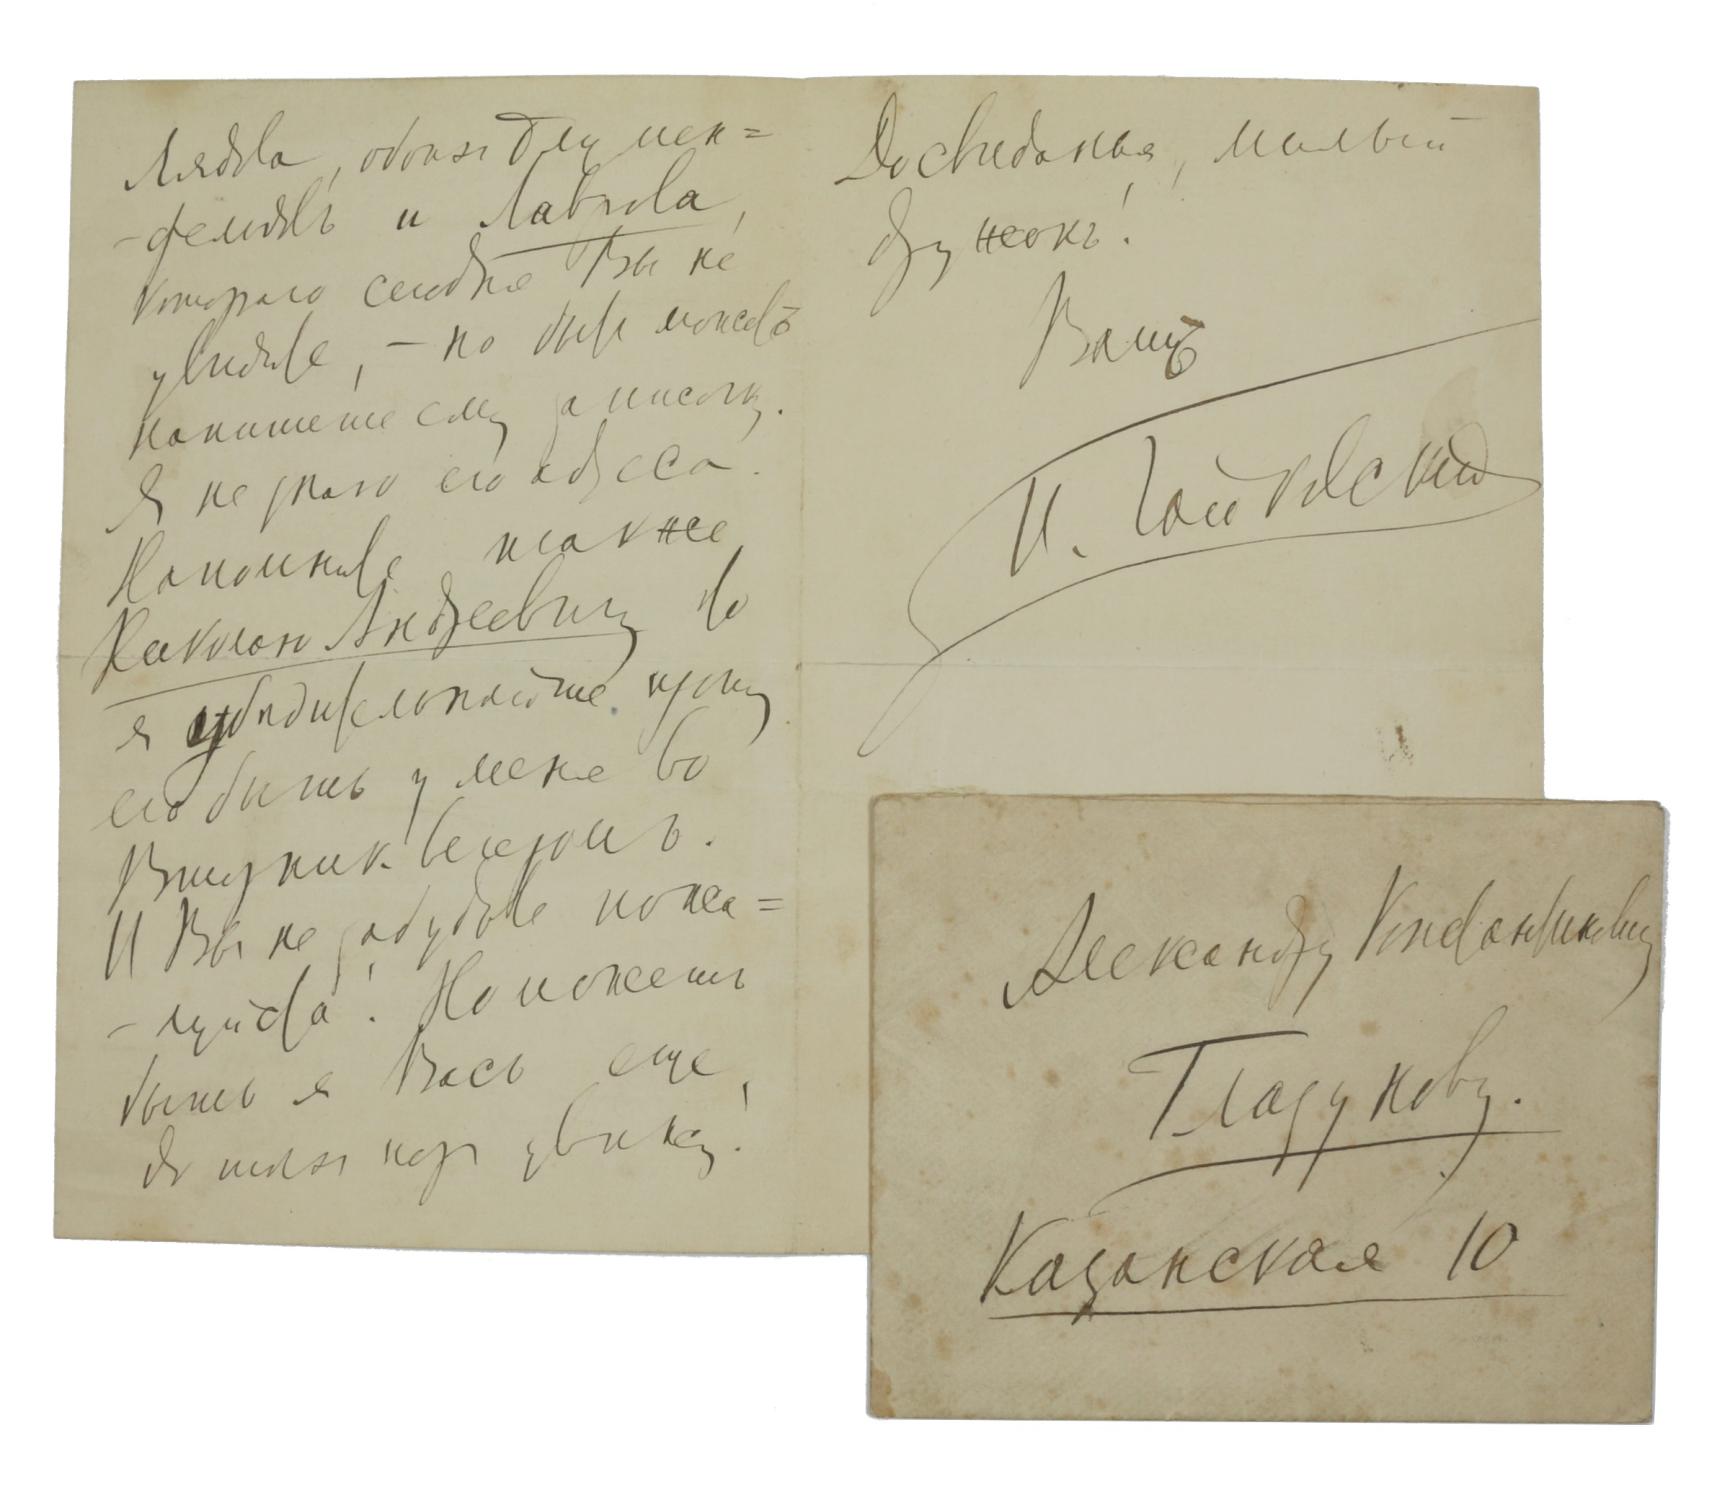 Лядова, обоихъ Блумен=
-фельдовъ и Лаврова,
котораго сегодня Вы не
увидите, – но быть можетъ
напишете ему записочку.
Я не знаю его адреса.
Напомните также
Николаю Андреевичу что
я убедительнѣйше прошу
его быть у меня во
Вторник вечеромъ.
И Вы не забудьте пожа=
-луйста! Но можетъ
быть я Васъ еще
до тѣхъ поръ увижу!
До свиданья, милый
дружокъ!
Вашъ
П. Чайковский
Александру Константиновичу
Глазунову.
Казанская 10